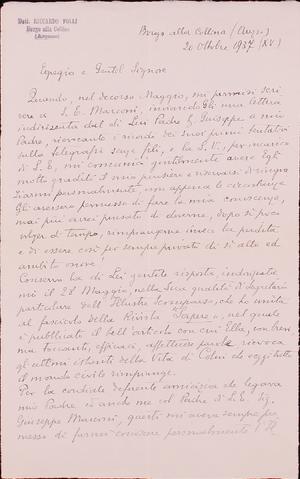 Dott. RICCARDO FOLLI
Borgo alla Collina
(Arezzo)
Borgo alla Collina (Arezzo)
20 Ottobre 1937 (XV.)
Egregio e Gentil Signore
Quando, nel decorso Maggio, mi permisi scri
vere a S. E. Marconi, inviandogli una lettera
indirizzata dal di Lui Padre Sig. Giuseppe a mio
Padre, riguardante i ricordi dei suoi primi tentativi
sulla telegrafia senza fili, e la S. V., per incarico
di S. E., mi comunicò gentilmente avere Egli
molto gradito il mio pensiero e riservarsi di ringra
ziarmi personalmente, non appena le circostanze
Gli avessero permesso di fare la mia conoscenza,
mai più avrei pensato di doverne, dopo sì poco
volger di tempo, rimpiangerne invece la perdita
e di essere così per sempre privato di sì alto ed
ambito onore.
Conservo la di Lei gentile risposta, indirizzata
mi il 28 Maggio, nella Sua qualità di Segretario
particolare dell'Illustre Scomparso, che ho unita
al fascicolo della Rivista "Sapere", nel quale
si è pubblicato il bell'articolo con cui Ella, con brevi
ma toccanti, efficaci, affettuose parole rievoca
gli ultimi istanti della Vita di Colui che oggi tutto
il mondo civile rimpiange.
Per la cordiale deferente amicizia che legava
mio Padre ed anche me col Padre di S. E. Sig.
Giuseppe Marconi, questi mi aveva sempre pro
messo di farmi conoscere personalmente l'